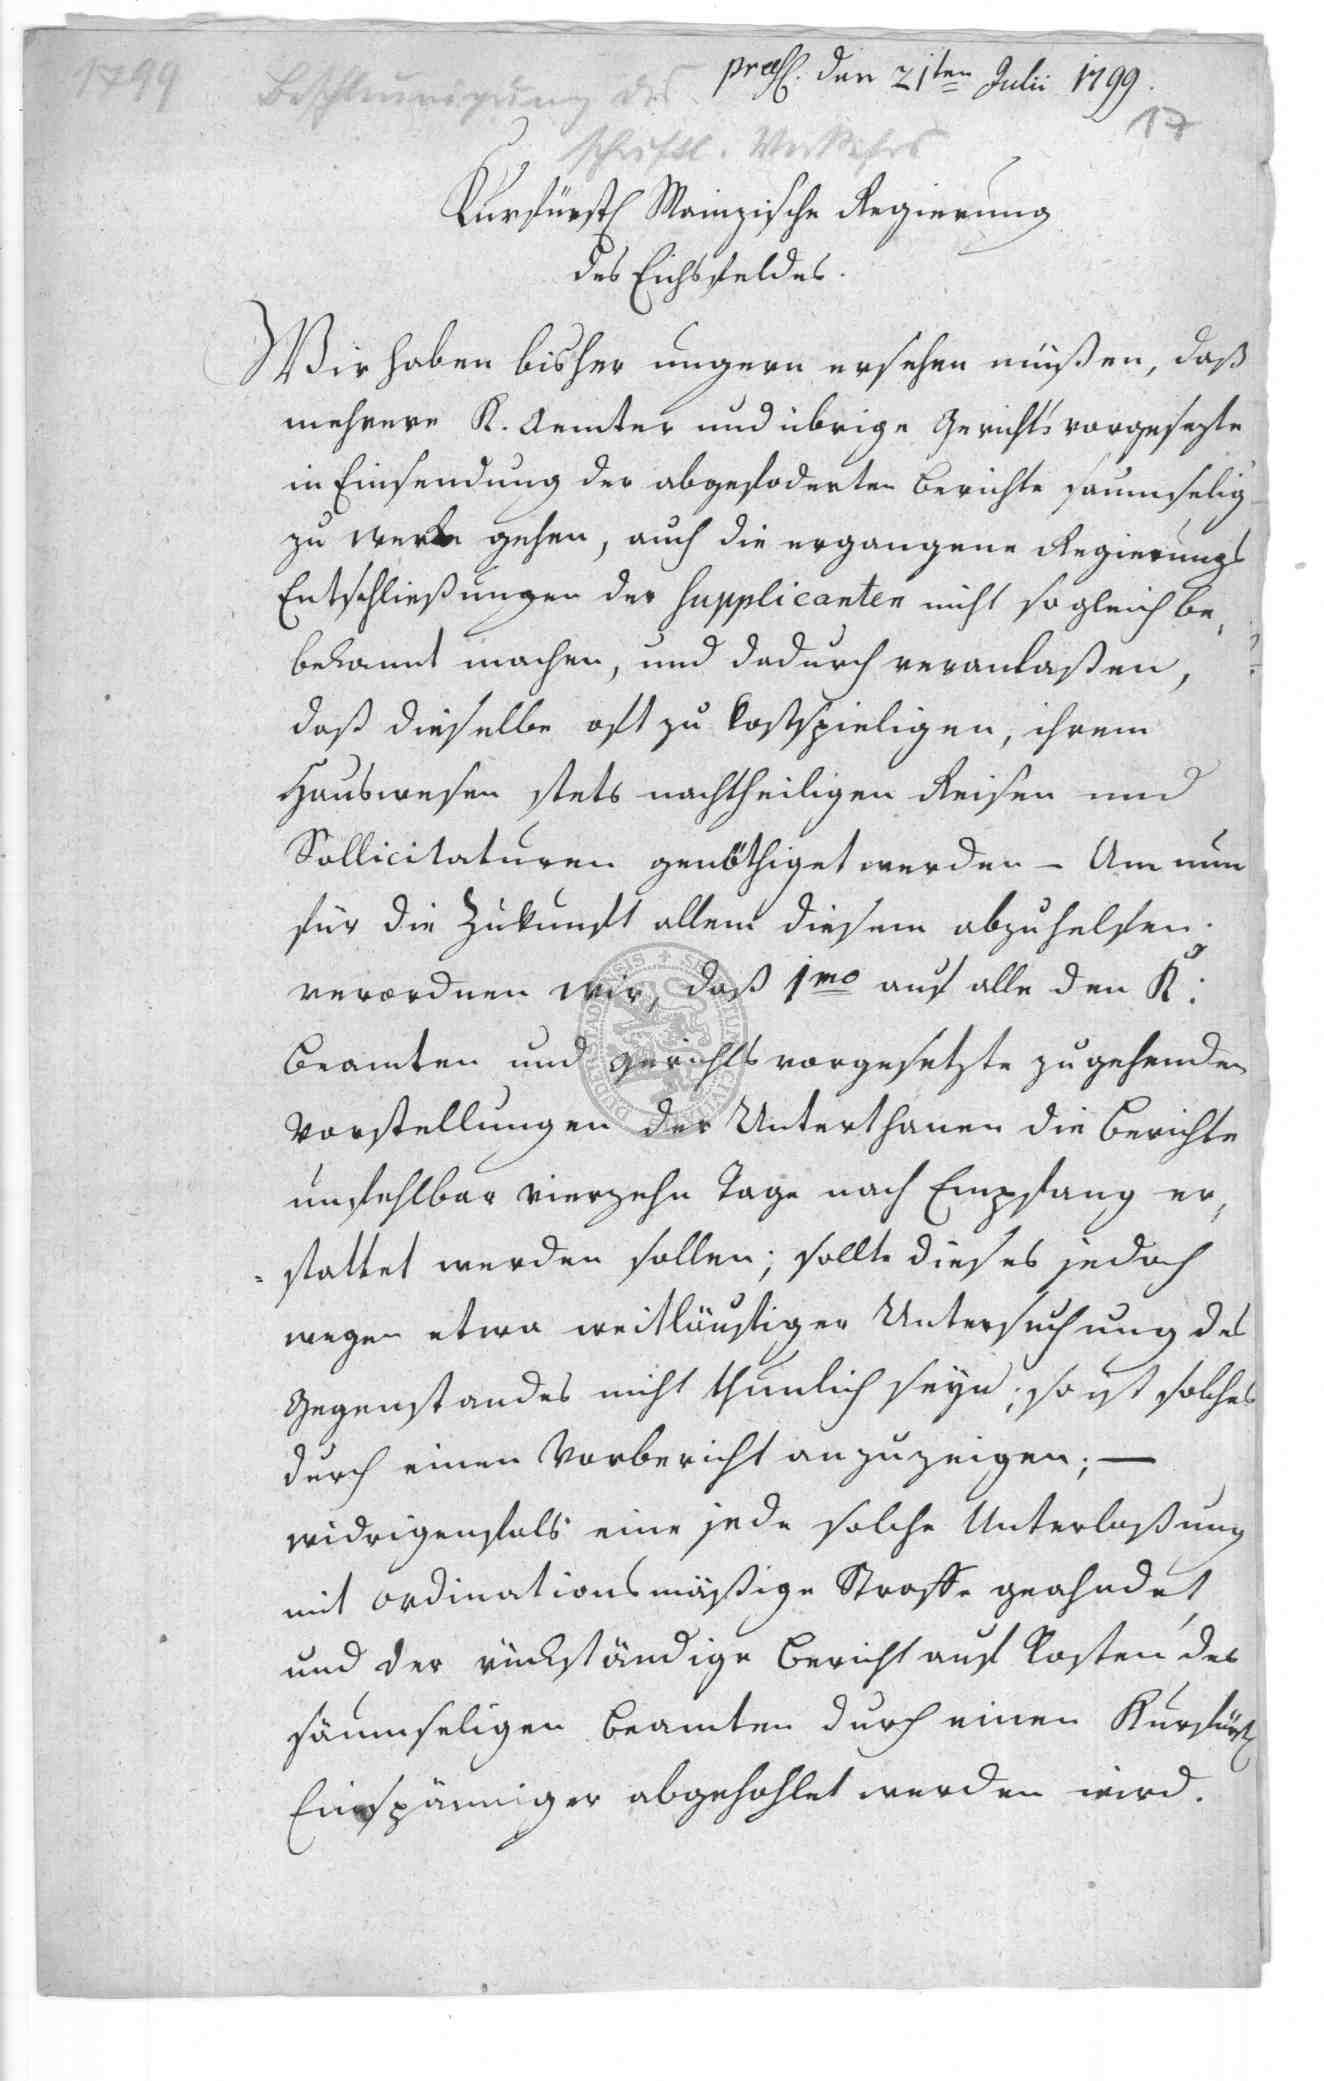 1799
praes. den 21ten Julii 1799.
Beschleunigung des
17
schriftl. Verkehrs
Kurfürstl Mainzische Regierung
des Eichsfeldes.
Wir haben bisher ungern ersehen müßen, daß
mehrere K. Aemter und übrige Gerichtsvorgesezte
in Einsendung der abgefoderten Berichte saumselig
zu werke gehen, auch die ergangene Regierungs
Entschließungen der Supplicanten nicht sogleich be,
bekannt machen, und dadurch veranlaßen,
daß dieselbe oft zu kostspieligen, ihrem
Hauswesen stets nachtheiligen Reisen und
Sollicitaturen genöthiget werden – Um nun
für die Zukunft allem diesem abzuhelfen.
verordnen wir, daß 1mo auf alle den K.
Beamten und Gerichtsvorgesetzte zugehenden
Vorstellungen der Unterthanen die Berichte
unfehlbar vierzehn Tage nach Empfang er,
stattet werden sollen; sollte dieses jedoch
wegen etwa weitläuftiger Untersuchung des
Gegenstandes nicht thunlich seyn; so ist solches
durch einen Vorbericht anzuzeigen; —
widrigenfals eine jede solche Unterlaßung
mit ordinationsmäßige Straffe geahndet,
und der rückständige Bericht auf Kosten des
säumseligen Beamten durch einen Kurfürstl
Einspänniger abgehohlet werden wird.